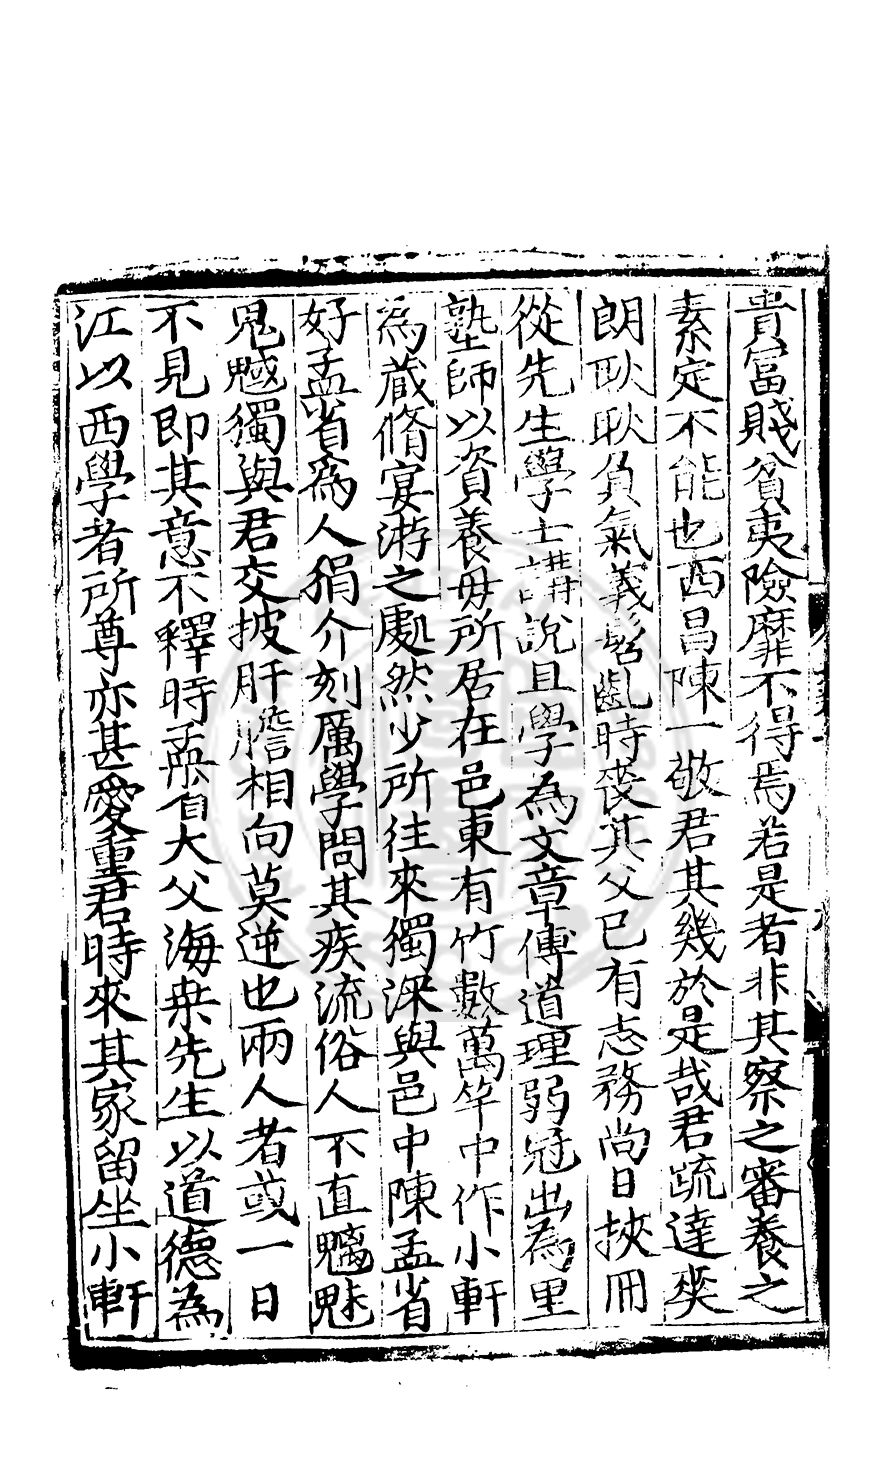 貴富賤貧夷險靡不得焉若是者非其察之審養之
素定不能也西昌陳一敬君其幾於是哉君疏達爽
朗耿耿負氣義髫齓時喪其父已有志務尚日挾冊
從先生學士講說且學為文章傳道理弱冠出為里
塾師以資養毋所居在邑東有竹數萬竿中作小軒
為蔵脩宴游之處然少所往來獨深與邑中陳孟省
好孟省為人狷介刻厲學問其疾流俗人不直魑魅
鬼魊獨與君交披肝膽相向莫逆也兩人者或一日
不見即其意不釋時孟省大父海桒先生以道德為
江以西學者所尊亦甚愛重君時來其家留坐小軒